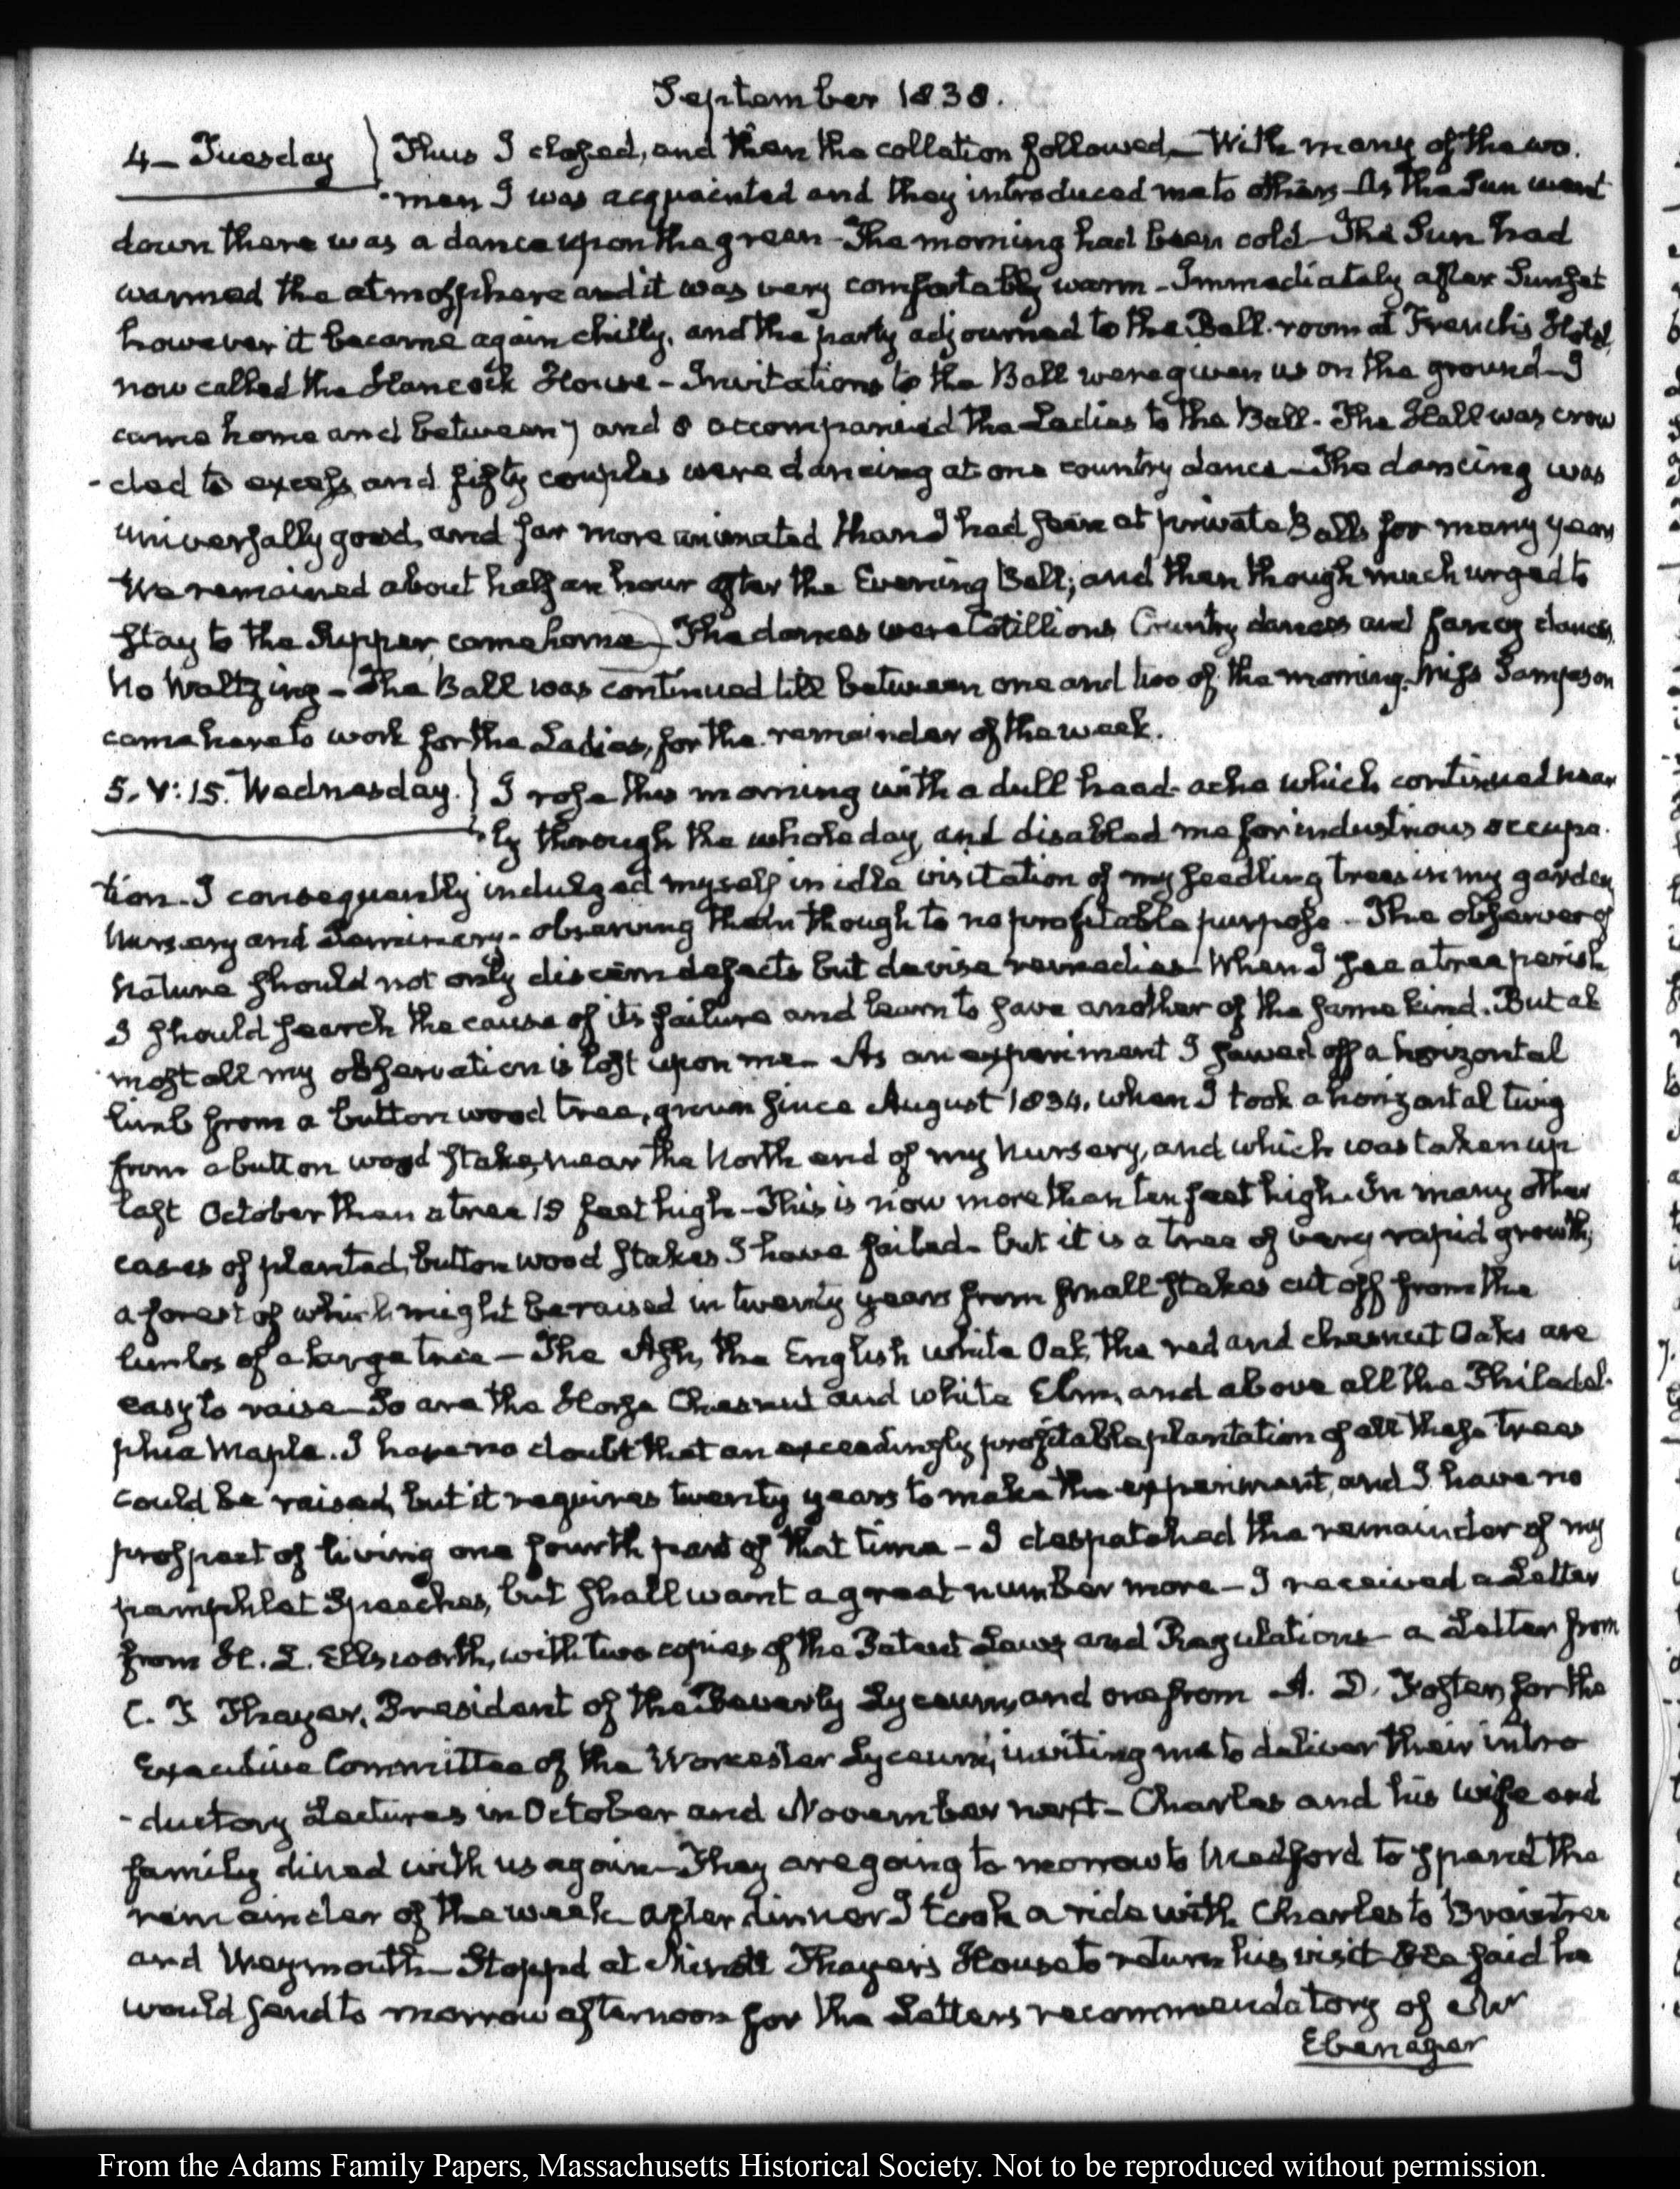 September 1838.
4_ Tuesday } Thus I closed, and then the collation followed_ With many of the wo.
-men I was acquainted and they introduced me to others_ As the Sun went
down there was a dance upon the green_ The morning had been cold_ The Sun had
warmed the atmosphere and it was very comfortably warm_ Immediately after Sunset
however it became again chilly, and the party adjourned to the Ball-room at French's Hotel,
now called the Hancock House_ Invitations to the Ball were given us on the ground_ I
came home and between 7 and 8 accompanied the Ladies to the Ball_ The Hall was crow
-ded to excess, and fifty couples were dancing at one country dance_ The dancing was
universally good, and far more animated than I had seen at private Balls for many years
We remained about half an hour after the Evening Bell; and then though much urged to
stay to the Supper, came home_ The dances were Cotillions, Country dances and fancy dances,
No Waltzing_ The Ball was continued till between one and two of the morning. Miss Sampson
came here to work for the Ladies, for the remainder of the week.
5. V:15. Wednesday. } I rose this morning with a dull head-ache which continued near
-ly through the whole day, and disabled me for industrious occupa-
tion_ I consequently indulged myself in idle visitation of my seedling trees in my garden,
Nursery and Seminary_ observing them though to no profitable purpose_ The observer of
Nature should not only discern defects but devise remedies_ When I see a tree perish,
I should search the cause of its failure and learn to save another of the same kind. But al
-most all my observation is lost upon me_ As an experiment I sawed off a horizontal
limb from a button wood tree, grown since August 1834, when I took a horizontal twig
from a button wood stake, near the North end of my Nursery, and which was taken up
last October then a tree 15 feet high_ This is now more than ten feet high_ In many other
cases of planted, button wood stakes I have failed_ but it is a tree of very rapid growth;
a forest of which might be raised in twenty years from small stakes cut off from the
limbs of a large tree_ The Ash, the English white Oak, the red and chesnut Oaks are
easy to raise_ So are the Horse Chesnut and white Elm, and above all the Philadel-
phia Maple. I have no doubt that an exceedingly profitable plantation of all these trees
could be raised, but it requires twenty years to make the experiment, and I have no
prospect of living one fourth part of that time_ I despatched the remainder of my
pamphlet Speeches, but shall want a great number more_ I received a Letter
from H. L. Ellsworth, with two copies of the Patent Laws and Regulations_ a Letter from
C. T. Thayer, President of the Beverly Lyceum, and one from A. D. Foster, for the
Executive Committee of the Worcester Lyceum, inviting me to deliver their intro
-ductory Lectures in October and November next_ Charles and his wife and
family dined with us again_ They are going to morrow to Medford to spend the
remainder of the week_ after dinner I took a ride with Charles to Braintree
and Weymouth_ Stopp'd at Minott Thayer's House to return his visit_ He said he
would send to morrow afternoon for the Letters recommendatory of Mr
Ebenezer
From the Adams Family Papers, Massachusetts Historical Society. Not to be reproduced without permission.